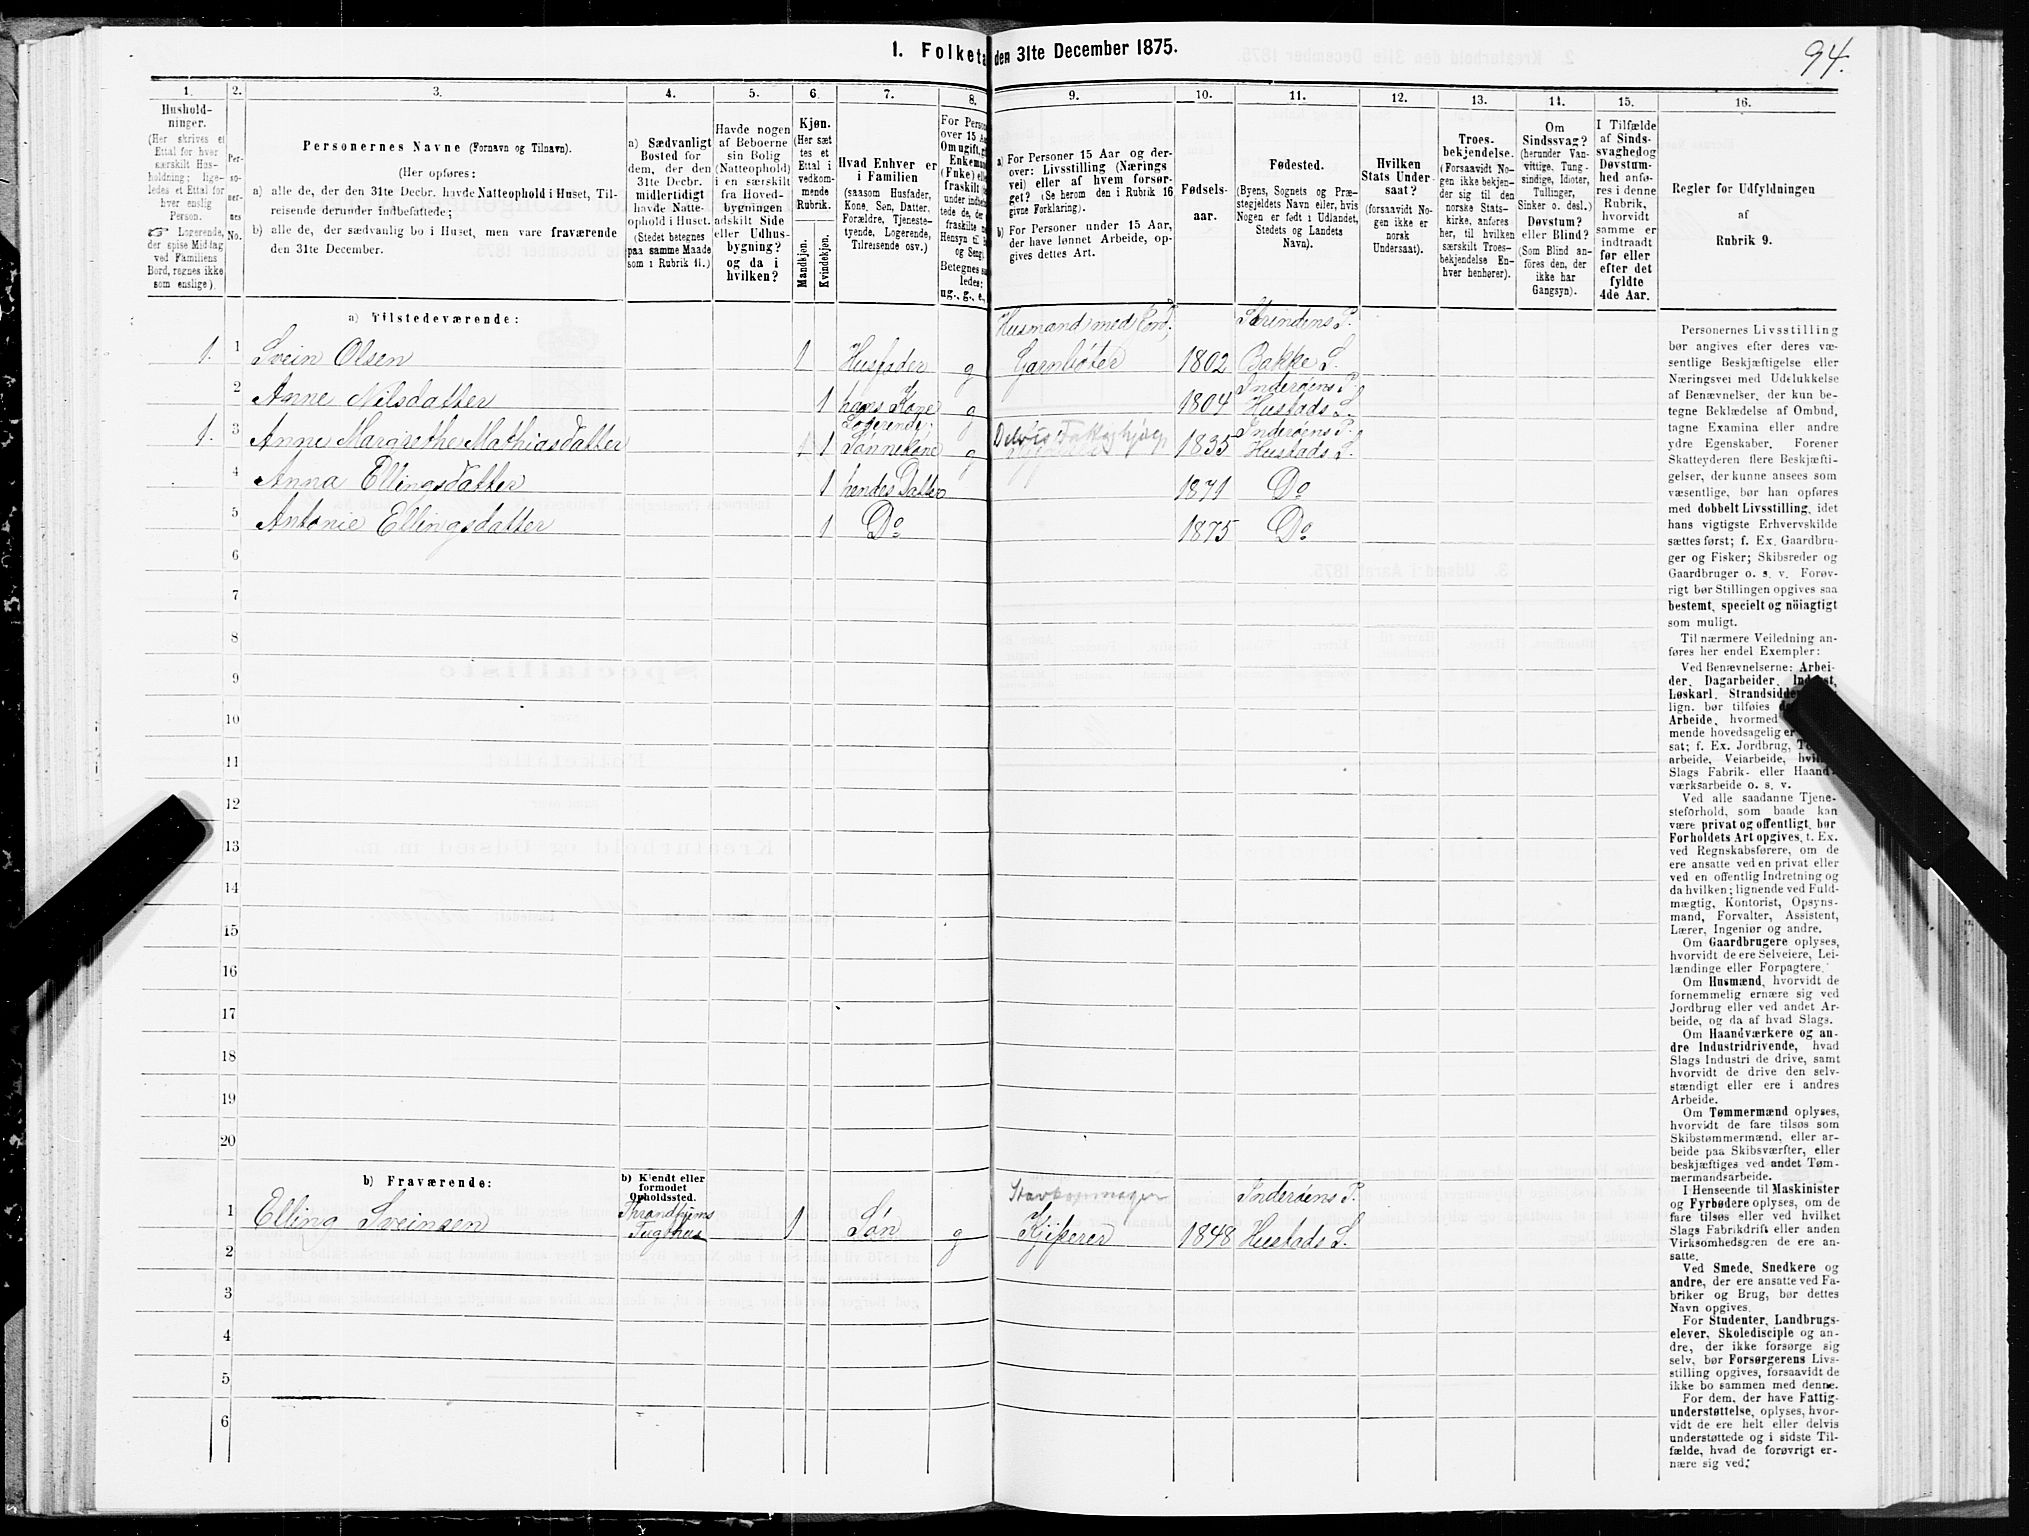 94.
1. Folketa den 31te December 1875.
1. 2. 3. 4. 5. 6. 7. 8. 9. 10. 11. 12. 13. 14. 15. 16.
Hushold-
ninger.
(Her skrives et
Ettal for hver
særskilt Hus-
holdning; lige-
ledes et Ettal for
hver enslig
Person.
☞ Logerende,
der spise Middag
ved Familiens
Bord, regnes ikke
som enslige).
Per-
so-
ner-
nes
No.
Personernes Navne (Fornavn og Tilnavn).
(Her opføres:
a) alle de, der den 31te Decbr. havde Natteophold i Huset, Til-
reisende derunder indbefattede;
b) alle de, der sædvanlig bo i Huset, men vare fraværende
den 31te December.
a) Sædvanligt
Bosted for
dem, der den
31te Decbr.
midlertidigt
havde Natte-
ophold i Huset.
(Stedet betegnes
paa samme Maade
som i Rubrik 11.)
Havde nogen
af Beboerne
sin Bolig
(Natteophold)
i en særskilt
fra Hoved-
bygningen
adskilt Side
eller Udhus-
bygning?
og da i
hvilken?
Kjøn.
(Her sæt
tes et
Ettal i
vedkom-
mende
Rubrik.
Mandkjøn.
Kvindekjøn.
Hvad Enhver er
i Familien
(saasom Husfader,
Kone, Søn, Datter,
Forældre, Tjeneste-
tyende, Logerende,
Tilreisende osv.)
For Person
over 15 Aa
Om ugift, gi
Enkeman
(Fnke) elle
fraskilt
under indbe
tede de, der
fraskilte
Hensyn til B
og Seng.
Betegnes sa
ledes:
ug., g., e.,
a) For Personer 15 Aar og der-
over: Livsstilling (Nærings
vei) eller af hvem forsør-
get? (Se herom den i Rubrik 16
givne Forklaring).
b) For Personer under 15 Aar,
der have lønnet Arbeide, op-
gives dettes Art.
Fødsels-
aar.
Fødested.
(Byens, Sognets og Præ-
stegjeldets Navn eller, hvis
Nogen er født i Udlandet,
Stedets og Landets
Navn).
Hvilken
Stats Under-
saat?
(forsaavidt No-
gen ikke er
norsk
Undersaat).
Troes-
bekjendelse.
(Forsaavidt No-
gen ikke bekjen-
der sig til den
norske Stats-
kirke, anføres
her, til hvilken
særskilt Troes-
bekjendelse En-
hver henhører).
Om
Sindssvag?
(herunder Van-
vittige, Tung-
sindige, Idioter,
Tullinger,
Sinker o. desl.)
Døvstum?
eller Blind?
(Som Blind an-
føres den, der
ikke har
Gangsyn).
I Tilfælde
af Sinds-
svaghedog
Døvstum-
hed anfø-
res i denne
Rubrik,
hvorvidt
samme er
indtraadt
før eller
efter det
fyldte
4de Aar.
Regler for Udfyldningen
af
Rubrik 9.
a) Tilstedeværende:
Husmand med Jord, Strindens P.
1. 1 Svein Olsen 1 Husfader g Garnbøter 1802 Bakke S.
Inderøens P.
2 Anne Nilsdatter 1 hans Kone g 1804 Hustads S.
Logerende; Delvis Fattighjælp Inderøens P.
1. 3 Anne Margrethe Mathiasdatter 1 1 Sønnekone g 1835 Hustads S.
4 Anna Ellingsdatter 1 hendes Datter 1871 Do
5 Antonie Ellingsdatter 1 Do 1875 Do
6
7
8
9
10
11
12
13
14
15
16
17
18
19
20
b) Fraværende:
b) Kjendt eller
formodet
Opholdssted.
Throndhjems Inderøens P.
1 Elling Sveinsen Tugthus 1 Søn g 1848 Hustads S.
2
3
4
5
6
Personernes Livsstilling
bør angives efter deres væ-
sentlige Beskjæftigelse eller
Næringsvei med Udelukkelse
af Benævnelser, der kun be-
tegne Beklædelse af Ombud,
tagne Examina eller andre
ydre Egenskaber. Forener
Skatteyderen flere Beskjæfti-
gelser, der kunne ansees som
væsentlige, bør han opføres
med dobbelt Livsstilling, idet
hans vigtigste Erhvervskilde
sættes først; f. Ex. Gaardbru-
ger og Fisker; Skibsreder og
Gaardbruger o. s. v. Forøv-
rigt bør Stillingen opgives saa
bestemt, specielt og nöiagtigt
som muligt.
Til nærmere Veiledning an-
føres her endel Exempler:
Ved Benævnelserne: Arbei-
der, Dagarbeider, Inderst,
Løskarl, Strandsidder
lign. bør tilføies
Arbeide, hvormed
mende hovedsagelig er
sat; f. Ex. Jordbrug,
arbeide, Veiarbeide, hvilke
Slags Fabrik- eller Haand-
værksarbeide o. s. v.
Ved alle saadanne Tjene-
steforhold, som baade kan
være privat og offentligt, bør
Forholdets Art opgives, t. Ex.
ved Regnskabsførere, om de
ere ansatte ved en privat eller
ved en offentlig Indretning og
da hvilken; lignende ved Fuld-
mægtig, Kontorist, Opsyns-
mand, Forvalter, Assistent,
Lærer, Ingeniør og andre.
Om Gaardbrugere oplyses,
hvorvidt de ere Selveiere, Lei-
lændinge eller Forpagtere.
Om Husmænd, hvorvidt de
fornemmelig ernære sig ved
Jordbrug eller ved andet Ar-
beide, og da af hvad Slags.
Om Haandværkere og an-
dre Industridrivende, hvad
Slags Industri de drive, samt
hvorvidt de drive den selv-
stændigt eller ere i andres
Arbeide.
Om Tømmermænd oplyses,
hvorvidt de fare tilsøs som
Skibstømmermænd, eller ar-
beide paa Skibsværfter, eller
beskjæftiges ved andet Tøm-
mermandsarbeide.
I Henseende til Maskinister
og Fyrbødere oplyses, om de
fare tilsøs eller ved hvilket
Slags Fabrikdrift eller anden
Virksomhedsgren de ere an-
satte.
Ved Smede, Snedkere og
andre, der ere ansatte ved Fa-
briker og Brug, bør dettes
Navn opgives.
For Studenter, Landbrugs-
elever, Skoledisciple og an-
dre, der ikke forsørge sig
selv, bør Forsørgerens Livs-
stilling opgives, forsaavidt de
ikke bo sammen med denne.
For dem, der have Fattig-
understøttelse, oplyses, hvor-
vidt de ere helt eller delvis
understøttede og i sidste Til-
fælde, hvad de forøvrigt er-
nære sig ved.